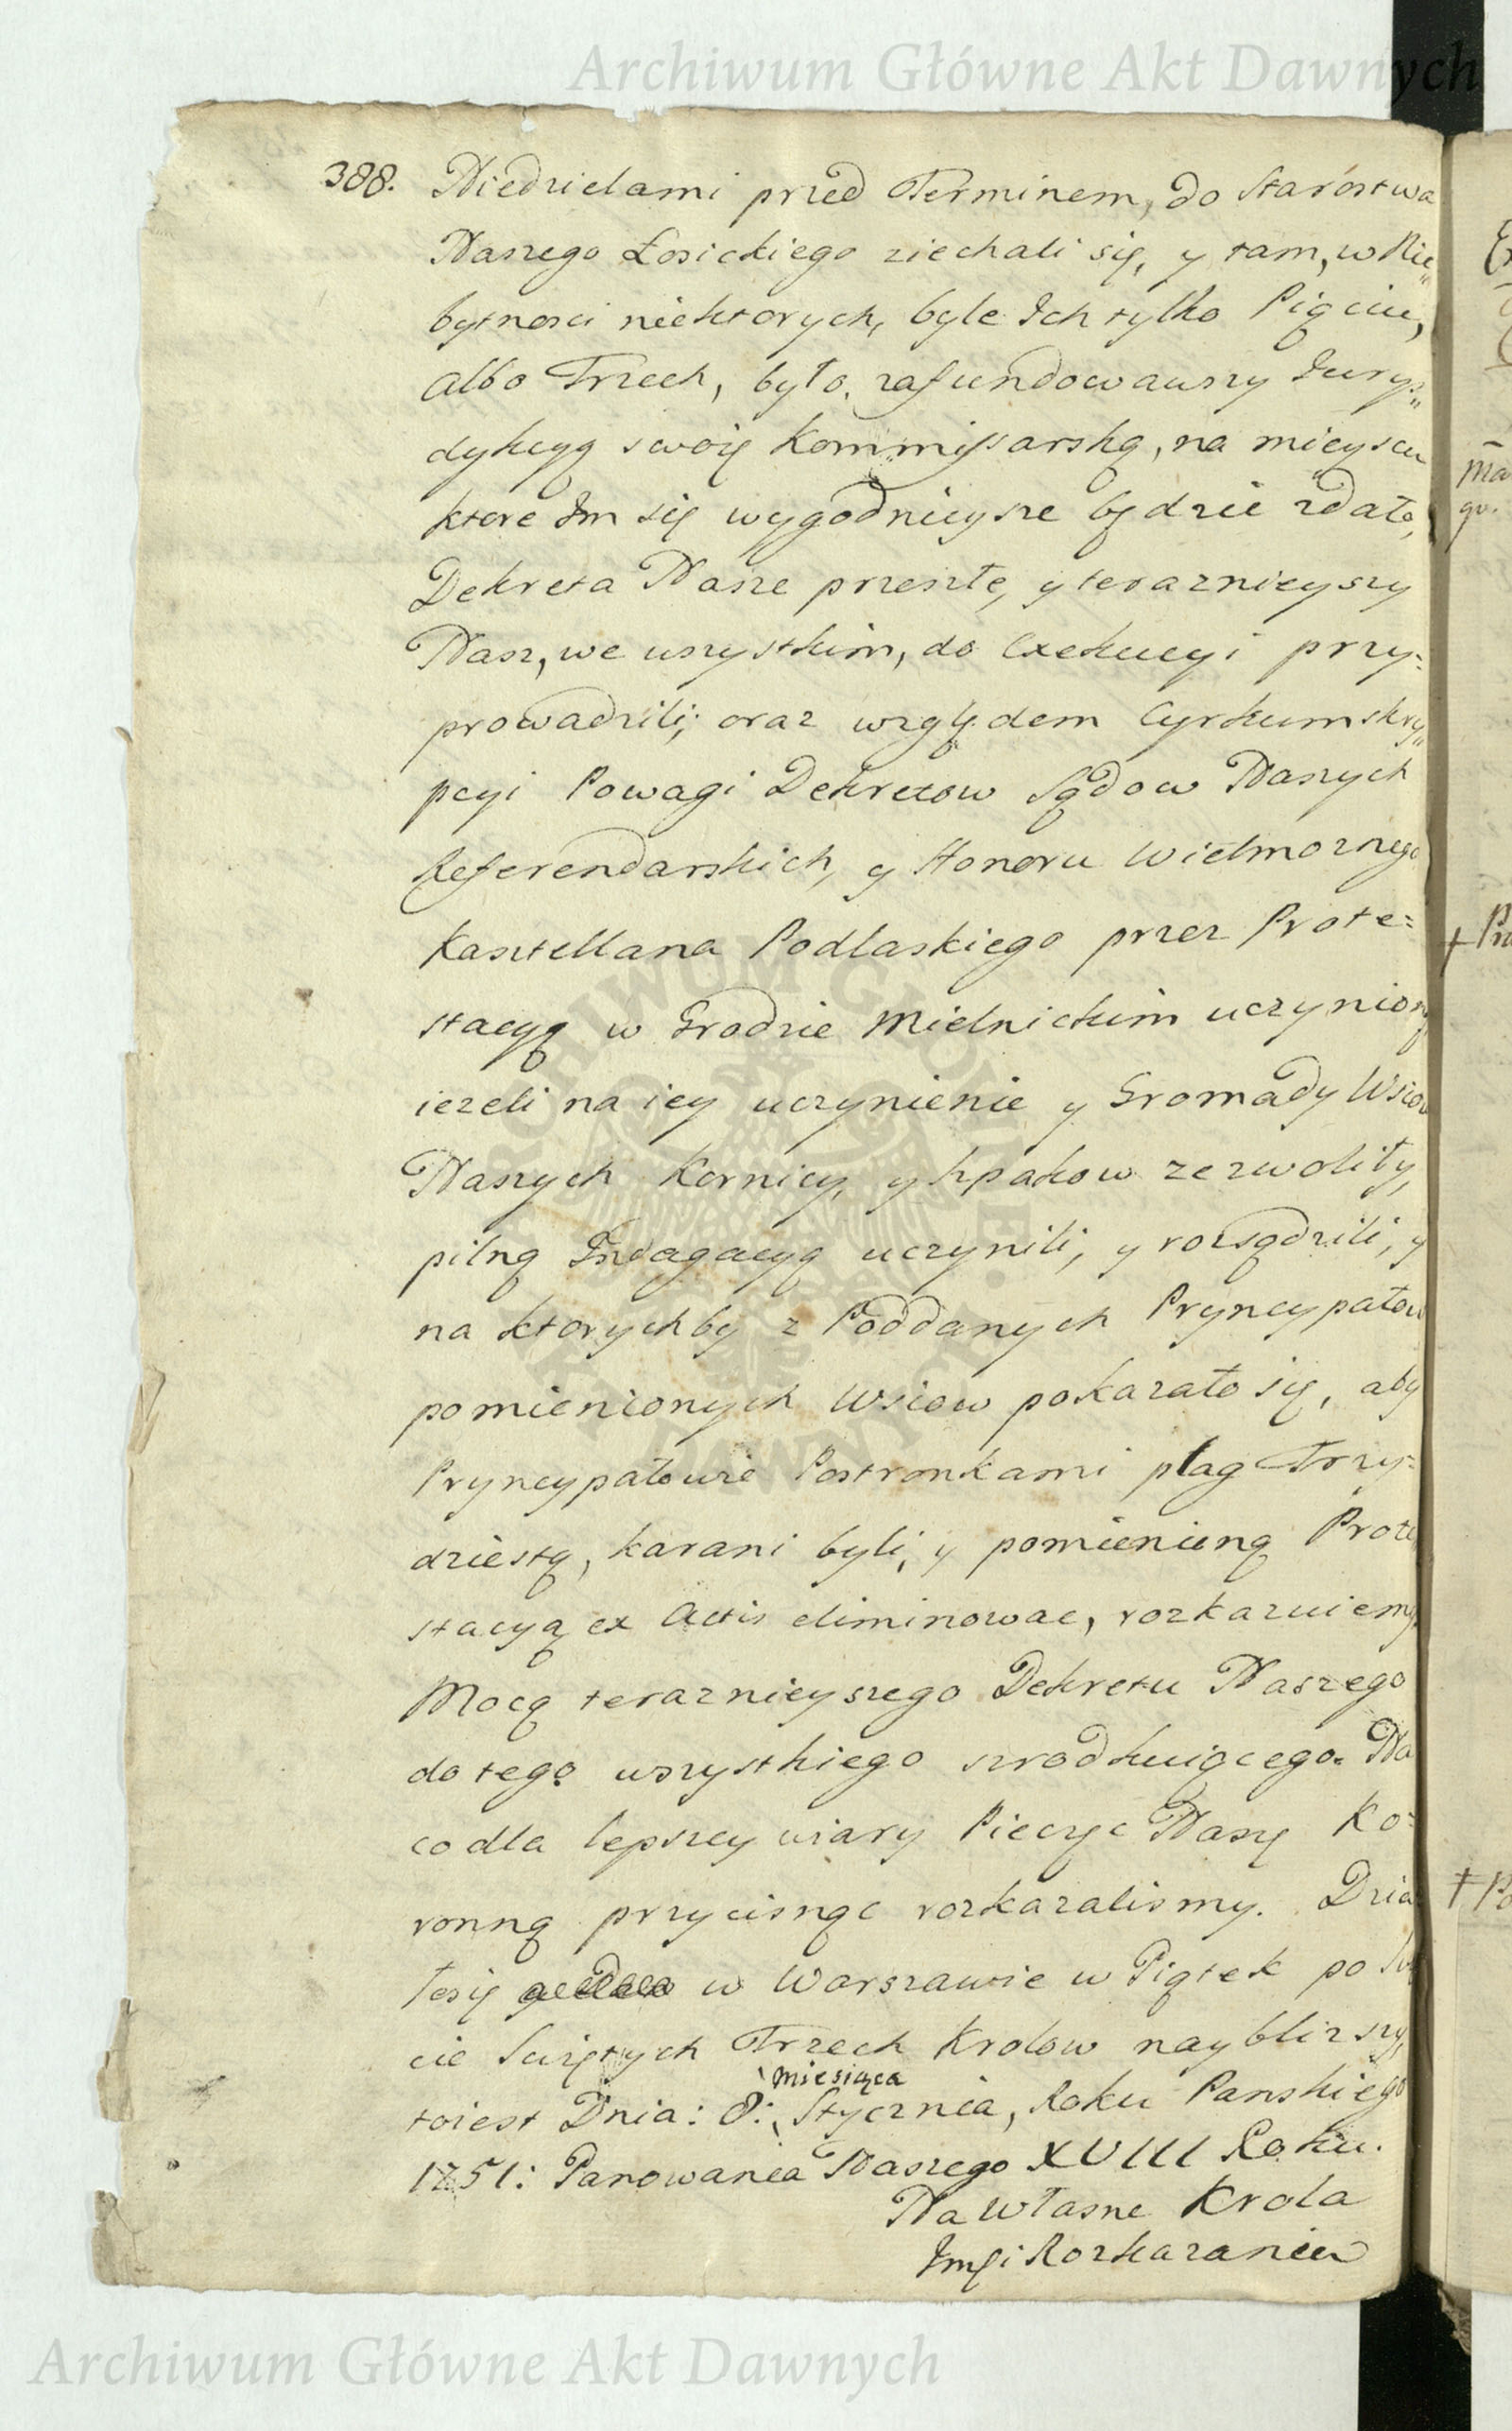 Archiwum Główne Akt Dawnych
388. Niedzielami przed Terminem, do Starostwa
Naszego Łosickiego ziechali się, y tam, w Nie„
bytnosci niektorych, byle Ich tylko Pięciu,
albo Trzech, było, zafundowawszy Jurys„
dykcyą swoię Kommissarską, na mieyscu
ktore Im się wygodnieysze będzie zdało,
Dekreta Nasze przeszłe, y teraznieyszy
Nasz, we wszystkim, do Exekucyi przy=
prowadzili; oraz względem Cyrkumskry„
pcyi Powagi Dekretow Sądow Naszych
Referendarskich, y Honoru Wielmoznego
Kasztellana Podlaskiego przez Prote=
stacyą w Grodzie Mielnickim uczynioną
iezeli na iey uczynienie y Gromady Wsiow
Naszych Kornicy, y Szpakow zezwoliły,
pilną Indagacyą uczynili, y rozsądzili, y
na ktorychby z Poddanych Pryncypałow
pomienionych Wsiow pokazało się, aby
Pryncypałowie Postronkami plag Trzy=
dziestą, karani byli, y pomienioną Prote
stacyą ex Actis eliminowac, rozkazuiemy
Mocą teraznieyszego Dekretu Naszego
do tego wszystkiego srodkuiącego. Na
co dla lepszey wiary Pieczęc Naszę Ko=
ronną przycisnąc rozkazalismy. Dzia
łosię w Warszawie w Piątek po
cie Swiętych Trzech Krolow nayblizszy,
miesiąca
toiest Dnia: 8: Stycznia, Roku Panskiego
1751: Panowania Naszego XVIII Roku.
Na Własne Krola
Jmsi Rozkazanie
ma
gv.
+ Pro
+ Po
ARCHIWUM GŁÓWNE AKT DAWNYCH
Archiwum Główne Akt Dawnych